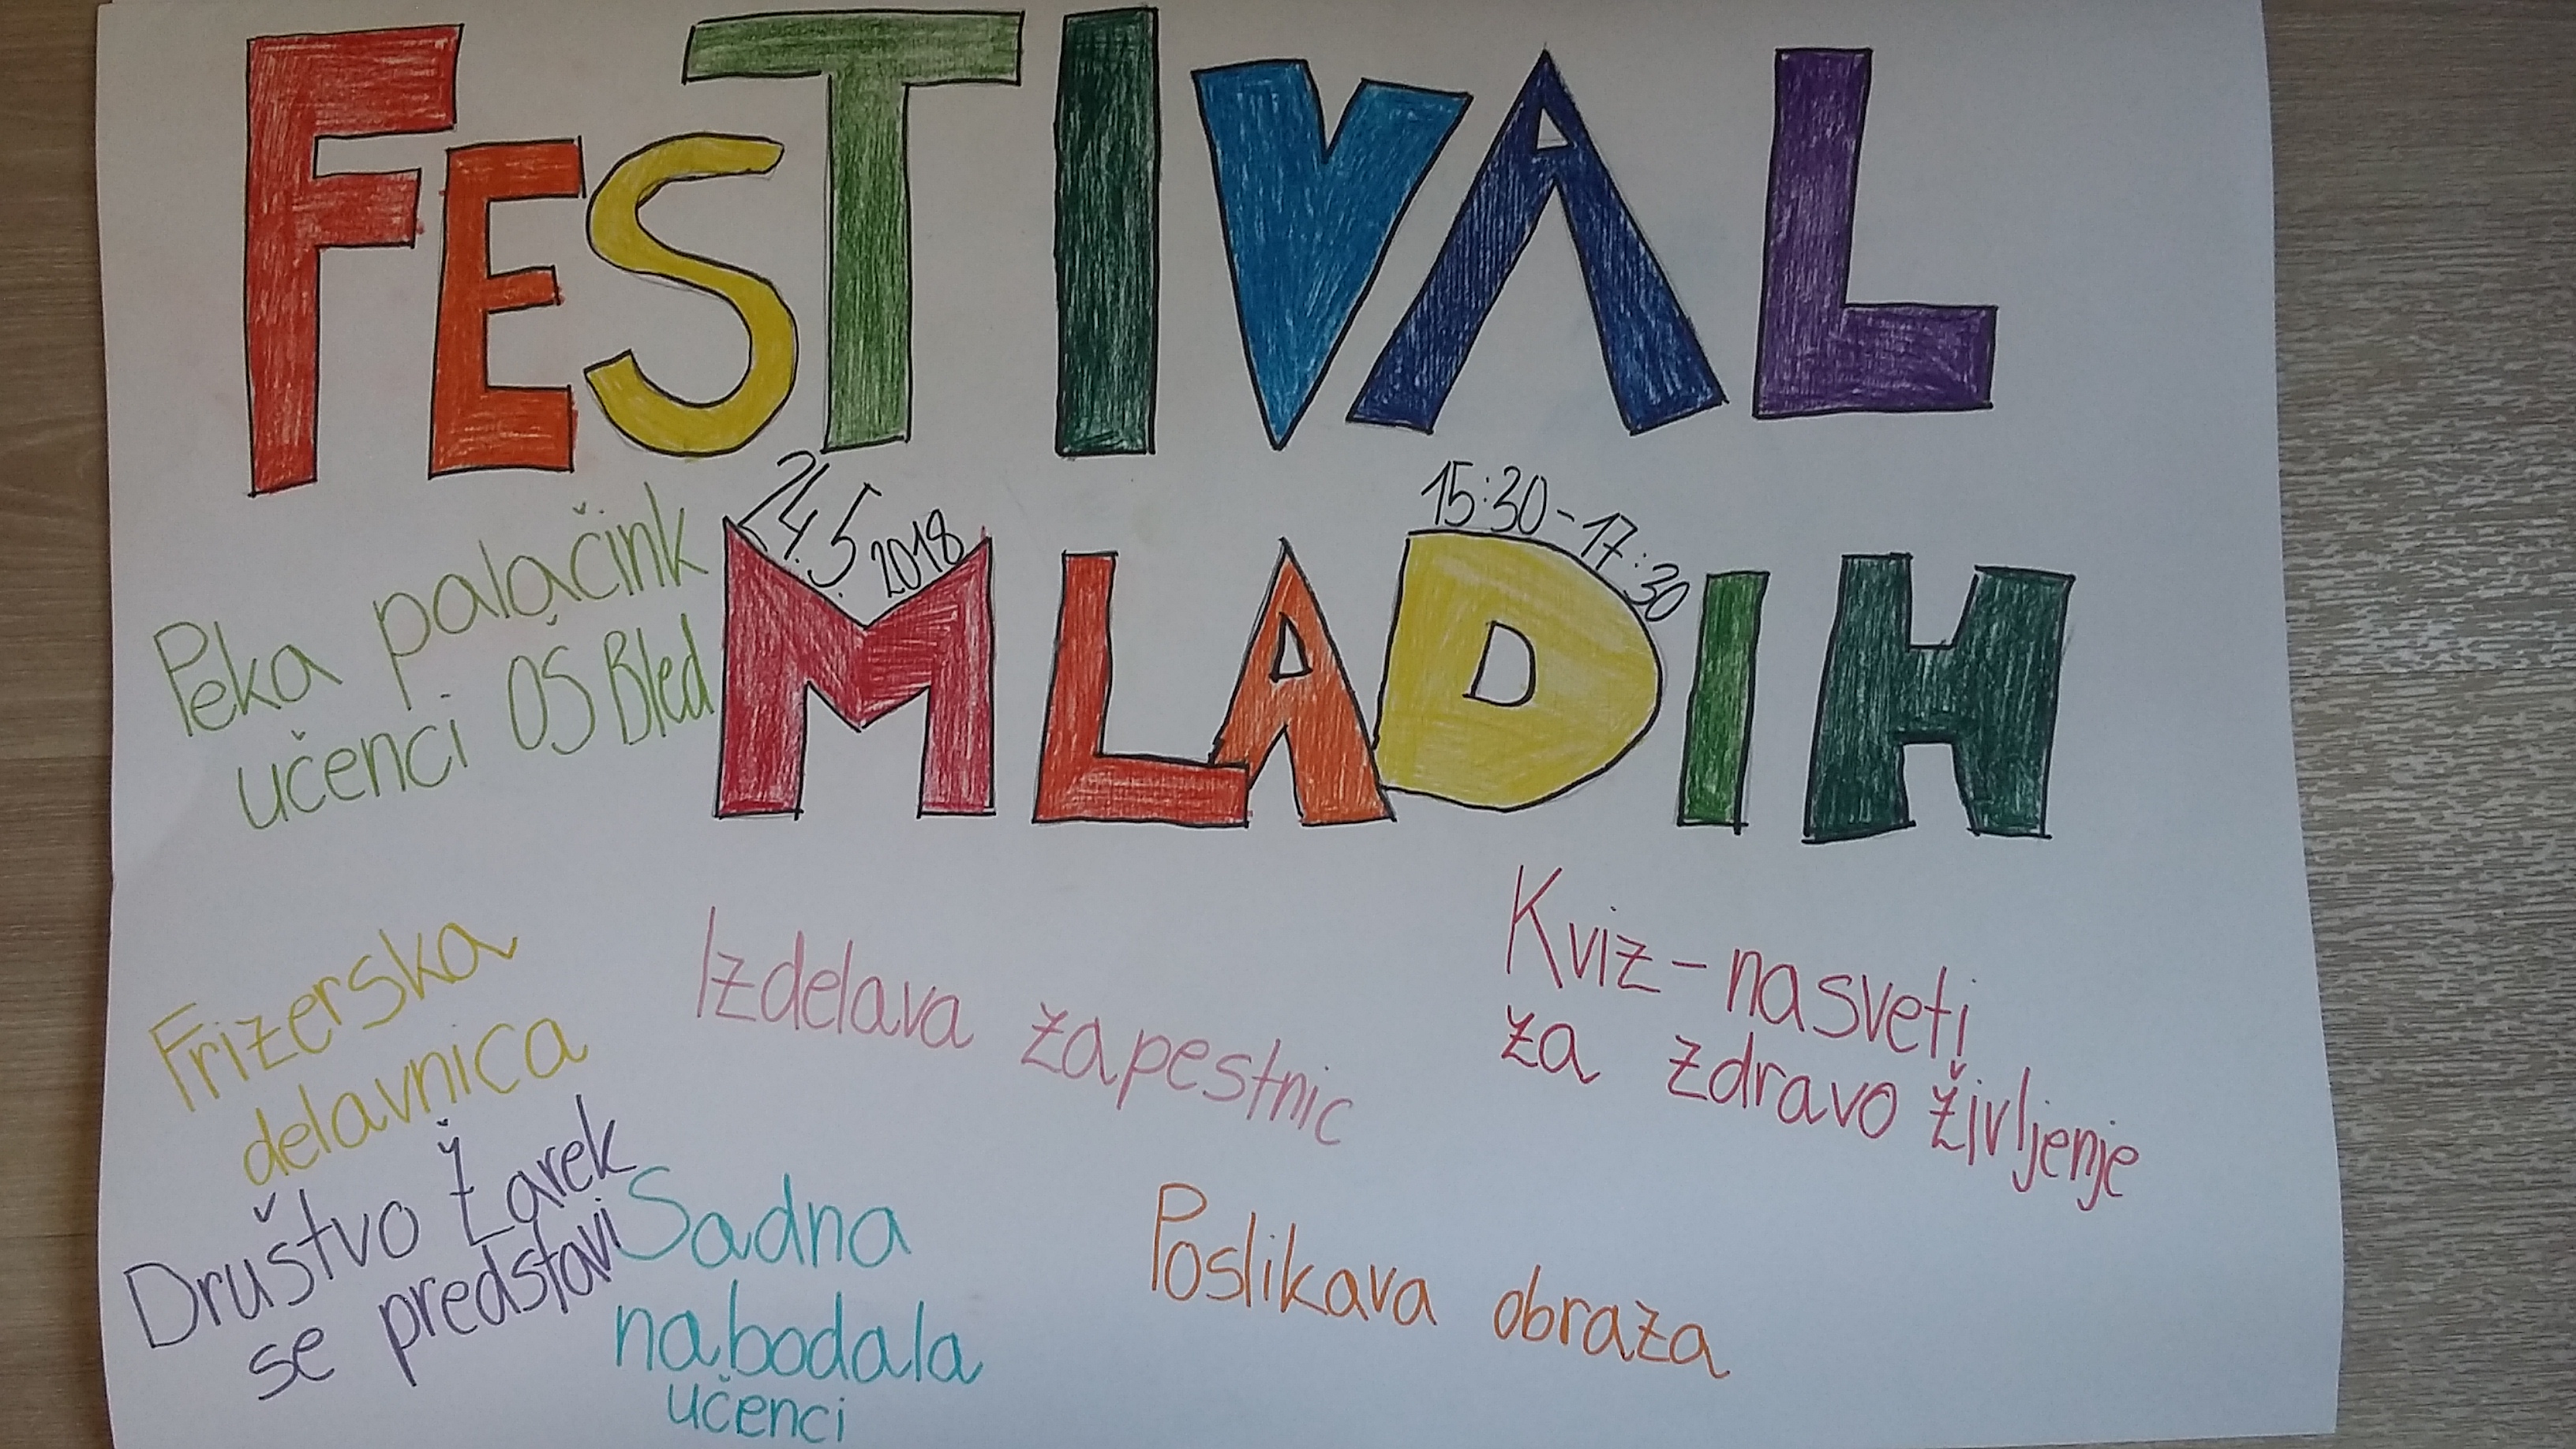 FESTIVAL
24.5.2018
15:30-17:30
MLADIH
Peka palačink
učenci OŠ Bled
Frizerska
delavnica
Izdelava zapestnic
Kviz-nasveti
za zdravo življenje
Društvo Žarek
se predstavi
Sadna
nabodala
učenci
Poslikava obraza